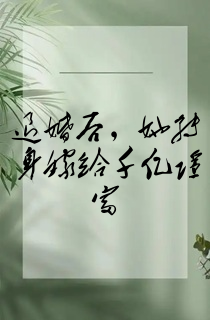 退婚后，她转
身嫁给千亿隐
富